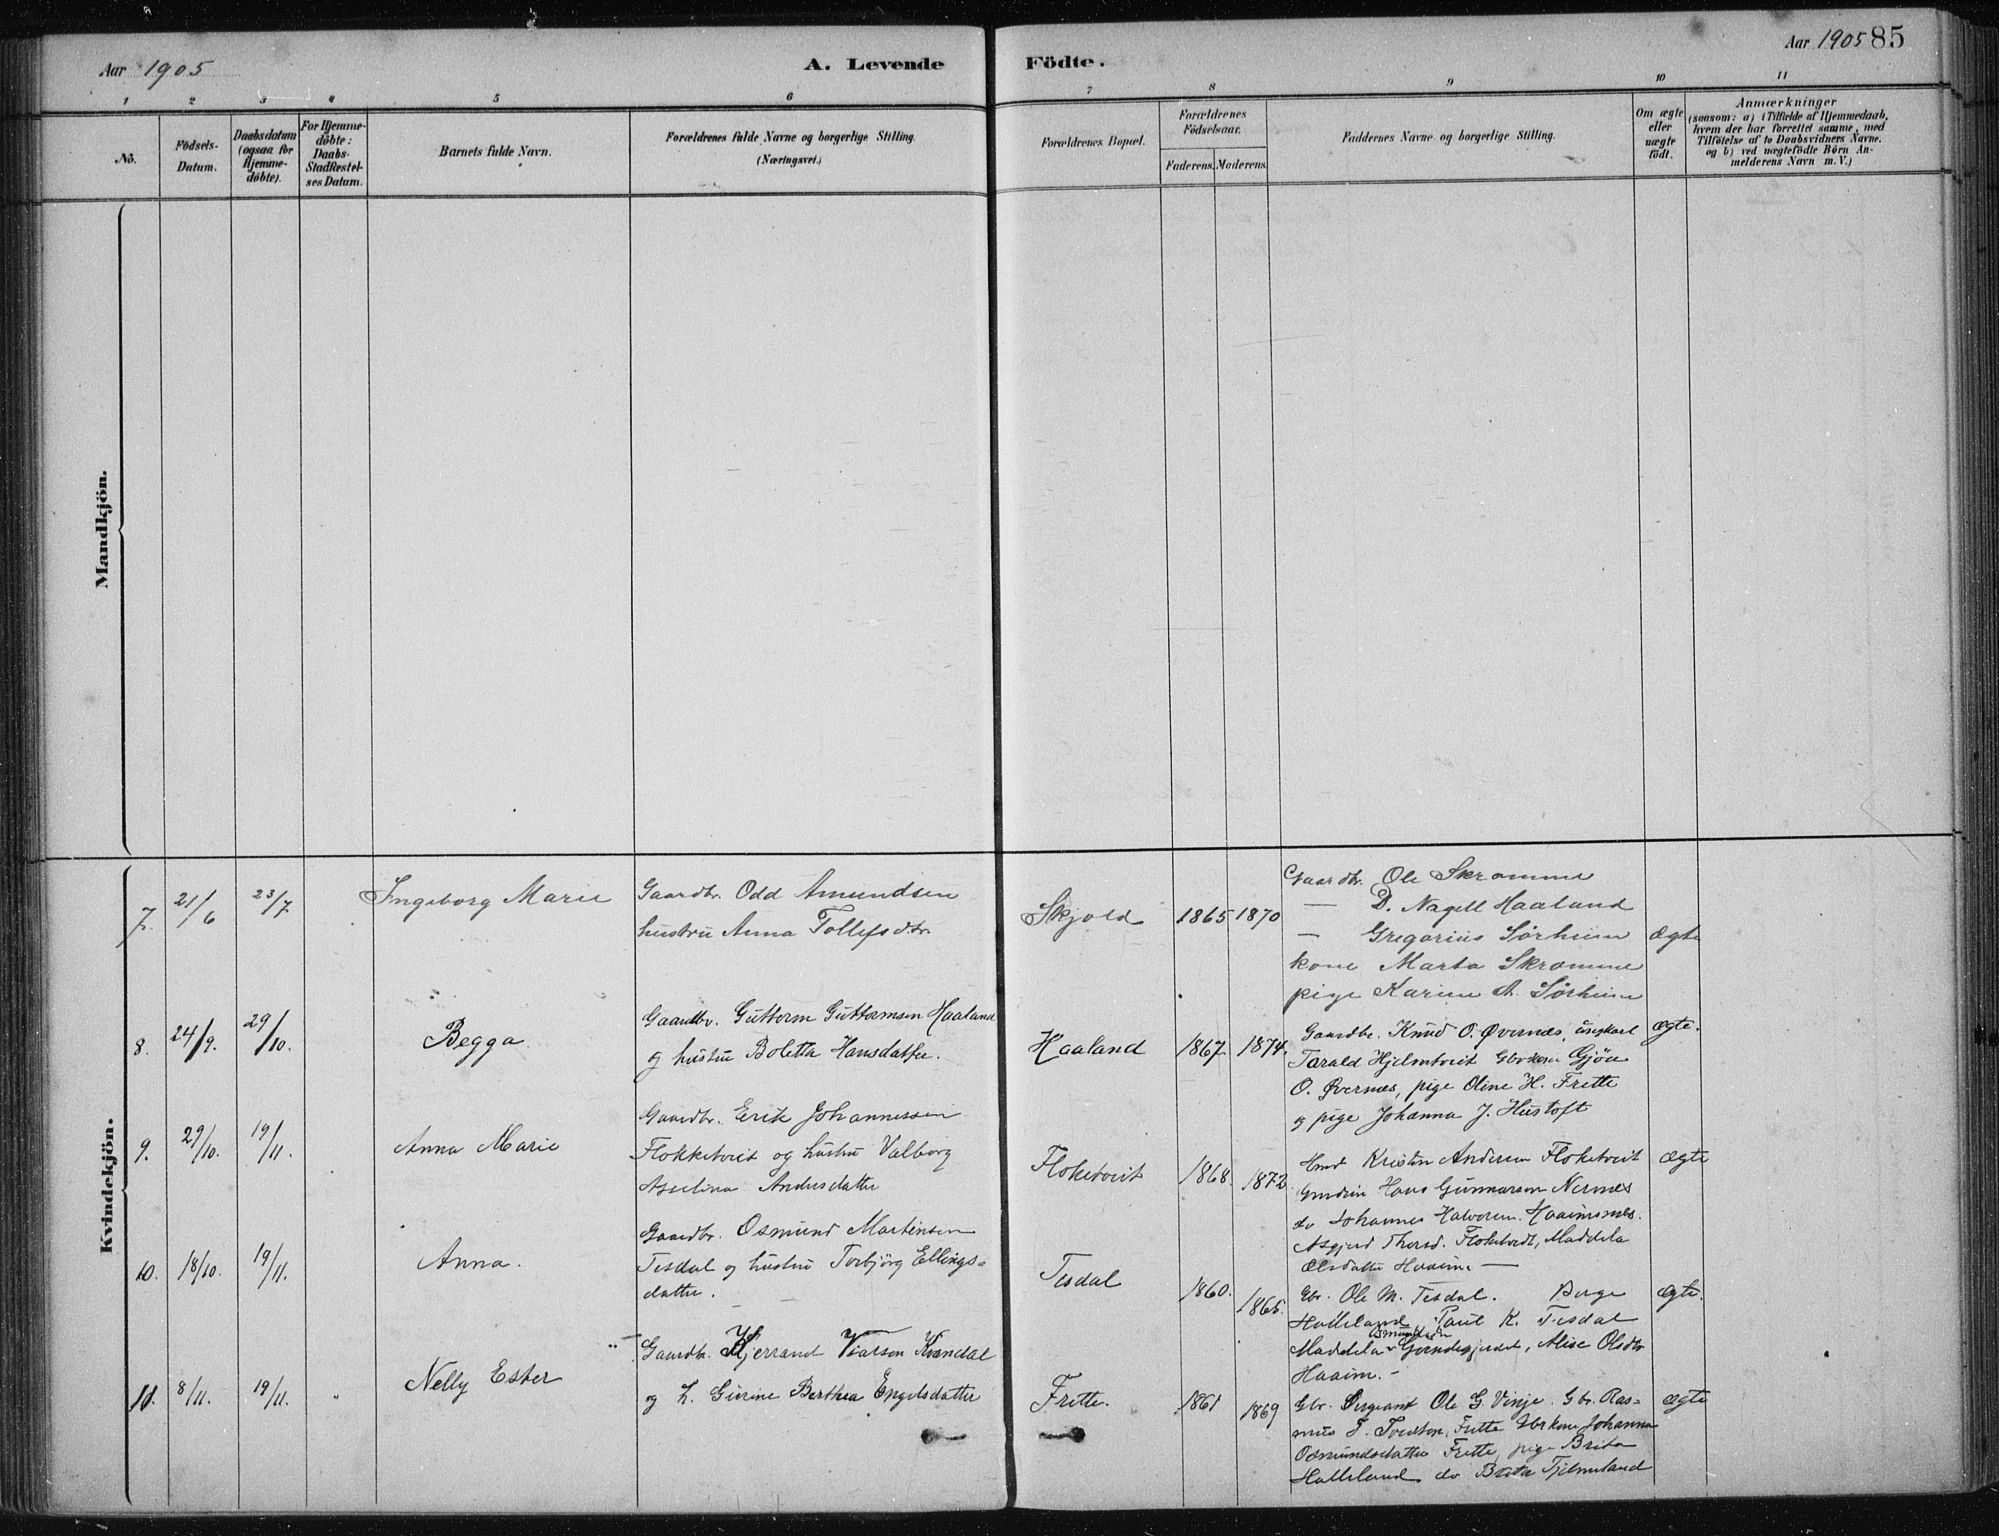 Aar 1905
A. Levende Födte.
Aar 1905 85
1 2 3 4 5 6 7 8 9 10 11
No.
Födsels-
Datum.
Daabsdatum
(ogsaa for
Hjemme-
döbte).
For Hjemme-
döbte:
Daabs-
Stadfæstel-
ses Datum.
Barnets fulde Navn.
Forældrenes fulde Navne og borgerlige Stilling.
(Næringsvei.)
Forældrenes Bopæl.
Forældrenes
Födselsaar.
Faderens. Moderens.
Faddernes Navne og borgerlige Stilling.
Om ægte
eller
uægte
født.
Anmærkninger
(saasom: a) i Tilfælde af Hjemmedaab,
hvem der har forrettet samme, med
Tilföielse af to Daabsvidners Navne,
og b) ved uægtefödte Börn An-
melderens Navn m. V.)
Mandkjön.
Kvindekjön.
7. 21/6 23/7
Ingeborg Marie
Gaardbr. Odd Amundsen
hustru Anna Tollefsdtr.
Skjold 1865 1870
Gaardbr. Ole Skromme
— D. Nagell Haaland
— Gregorius Sørheim
kone Marta Skromme
pige Karine A. Sørheim
Ægte
8. 24/9. 29/10.
Begga
Gaardbr. Guttorm Guttormsen Haaland
og hustru Boletta Hansdatter.
Haaland 1867. 1874.
Gaardbr. Knud O. Øvernes, ungkarl
Tarald Hjelmtveit Gbrkone Gjøa
O. Øvernes, pige Oline H. Frette
og pige Johanna J. Hustoft
Ægte.
9. 29/10. 19/11.
Anna Marie
Gaardbr. Erik Johannessen
Flokketveit og hustru Valborg
Asselina Andersdatter
Floketveit 1868. 1872.
Kristen Andersen Floketveit
Hans Gunnarsen Nernes
do Johannes Halvorsen Haaimsnes.
Asgjerd Thorsd. Floketvedt, Maddela
Olsdatter Haaim. —
Ægte
10. 18/10. 19/11.
Anna.
Gaardbr. Osmund Martinsen
Tesdal og hustru Torbjörg Ellings-
datter.
Tesdal 1860. 1865.
Gbr. Ole M. Tesdal. Berge
Halleland Paul K. Tesdal
Maddela Osmundsdtr, Alise Olsdtr
Haaim. -
Ægte.
11. 8/11. 19/11.
Nelly Ester
Gaardbr. Kjerrand Kvandal
og h. Gurine Berthea Engelsdatter
Frette. 1861 1869
Gbr. Sergeant Ole G. Vinje. Gbr. Ras-
mus Frette Gbrkone Johanna
Osmundsdatter Frette, pige Brita
Halleland do Brita Tjelmeland
Ægte